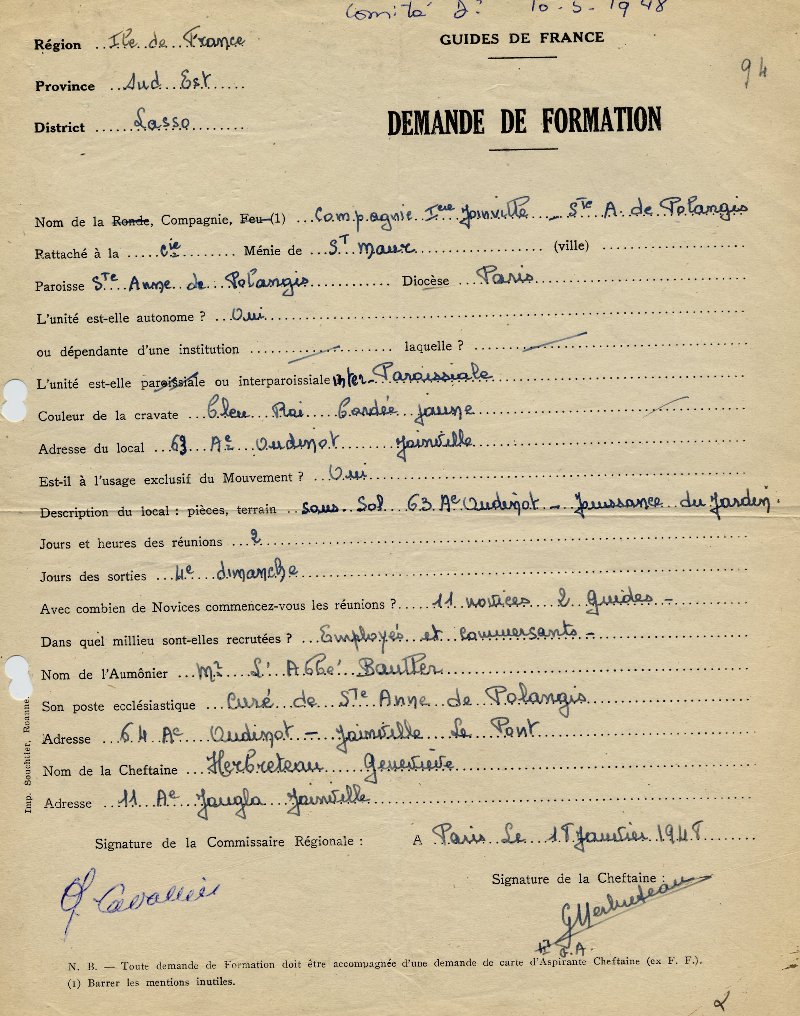 Comité Dr 10-5-1948
Région Ile de France
GUIDES DE FRANCE
94
Province Sud Est
District Lasso
DEMANDE DE FORMATION
Nom de la Ronde, Compagnie, Feu (1) Compagnie Iere Joinville _ Ste A. de Polangis
Rattaché à la Cie Ménie de St Maur (ville)
Paroisse Ste Anne de Polangis Diocèse Paris
L'unité est-elle autonome ? Oui
ou dépendante d'une institution laquelle ?
L'unité est-elle paroissiale ou interparoissiale inter-Paroissiale
Couleur de la cravate Bleu Roi Cordée jaune
Adresse du local 63 Ae Oudinot Joinville
Est-il à l'usage exclusif du Mouvement ? Oui
Description du local : pièces, terrain Sous Sol 63 Ae Oudinot - Jouissance du Jardin.
Jours et heures des réunions 2
Jours des sorties 4e dimanche
Avec combien de Novices commencez-vous les réunions ? 11 novices 2 Guides -
Dans quel millieu sont-elles recrutées ? Employés et commersants -
Nom de l'Aumônier Mr L'Abbé Bautter
Son poste ecclésiastique Curé de Ste Anne de Polangis
Adresse 64 Ae Oudinot - Joinville Le Pont
Nom de la Cheftaine Herbreteau Geneviève
Adresse 11 Ae Jougla Joinville
Signature de la Commissaire Régionale : A Paris Le 18 Janvier 1948
Signature de la Cheftaine :
Cavallini
GHerbreteau
N. B. — Toute demande de Formation doit être accompagnée d'une demande de carte d'Aspirante Cheftaine (ex F. F.).
(1) Barrer les mentions inutiles.
Imp. Souchier, Roanne.